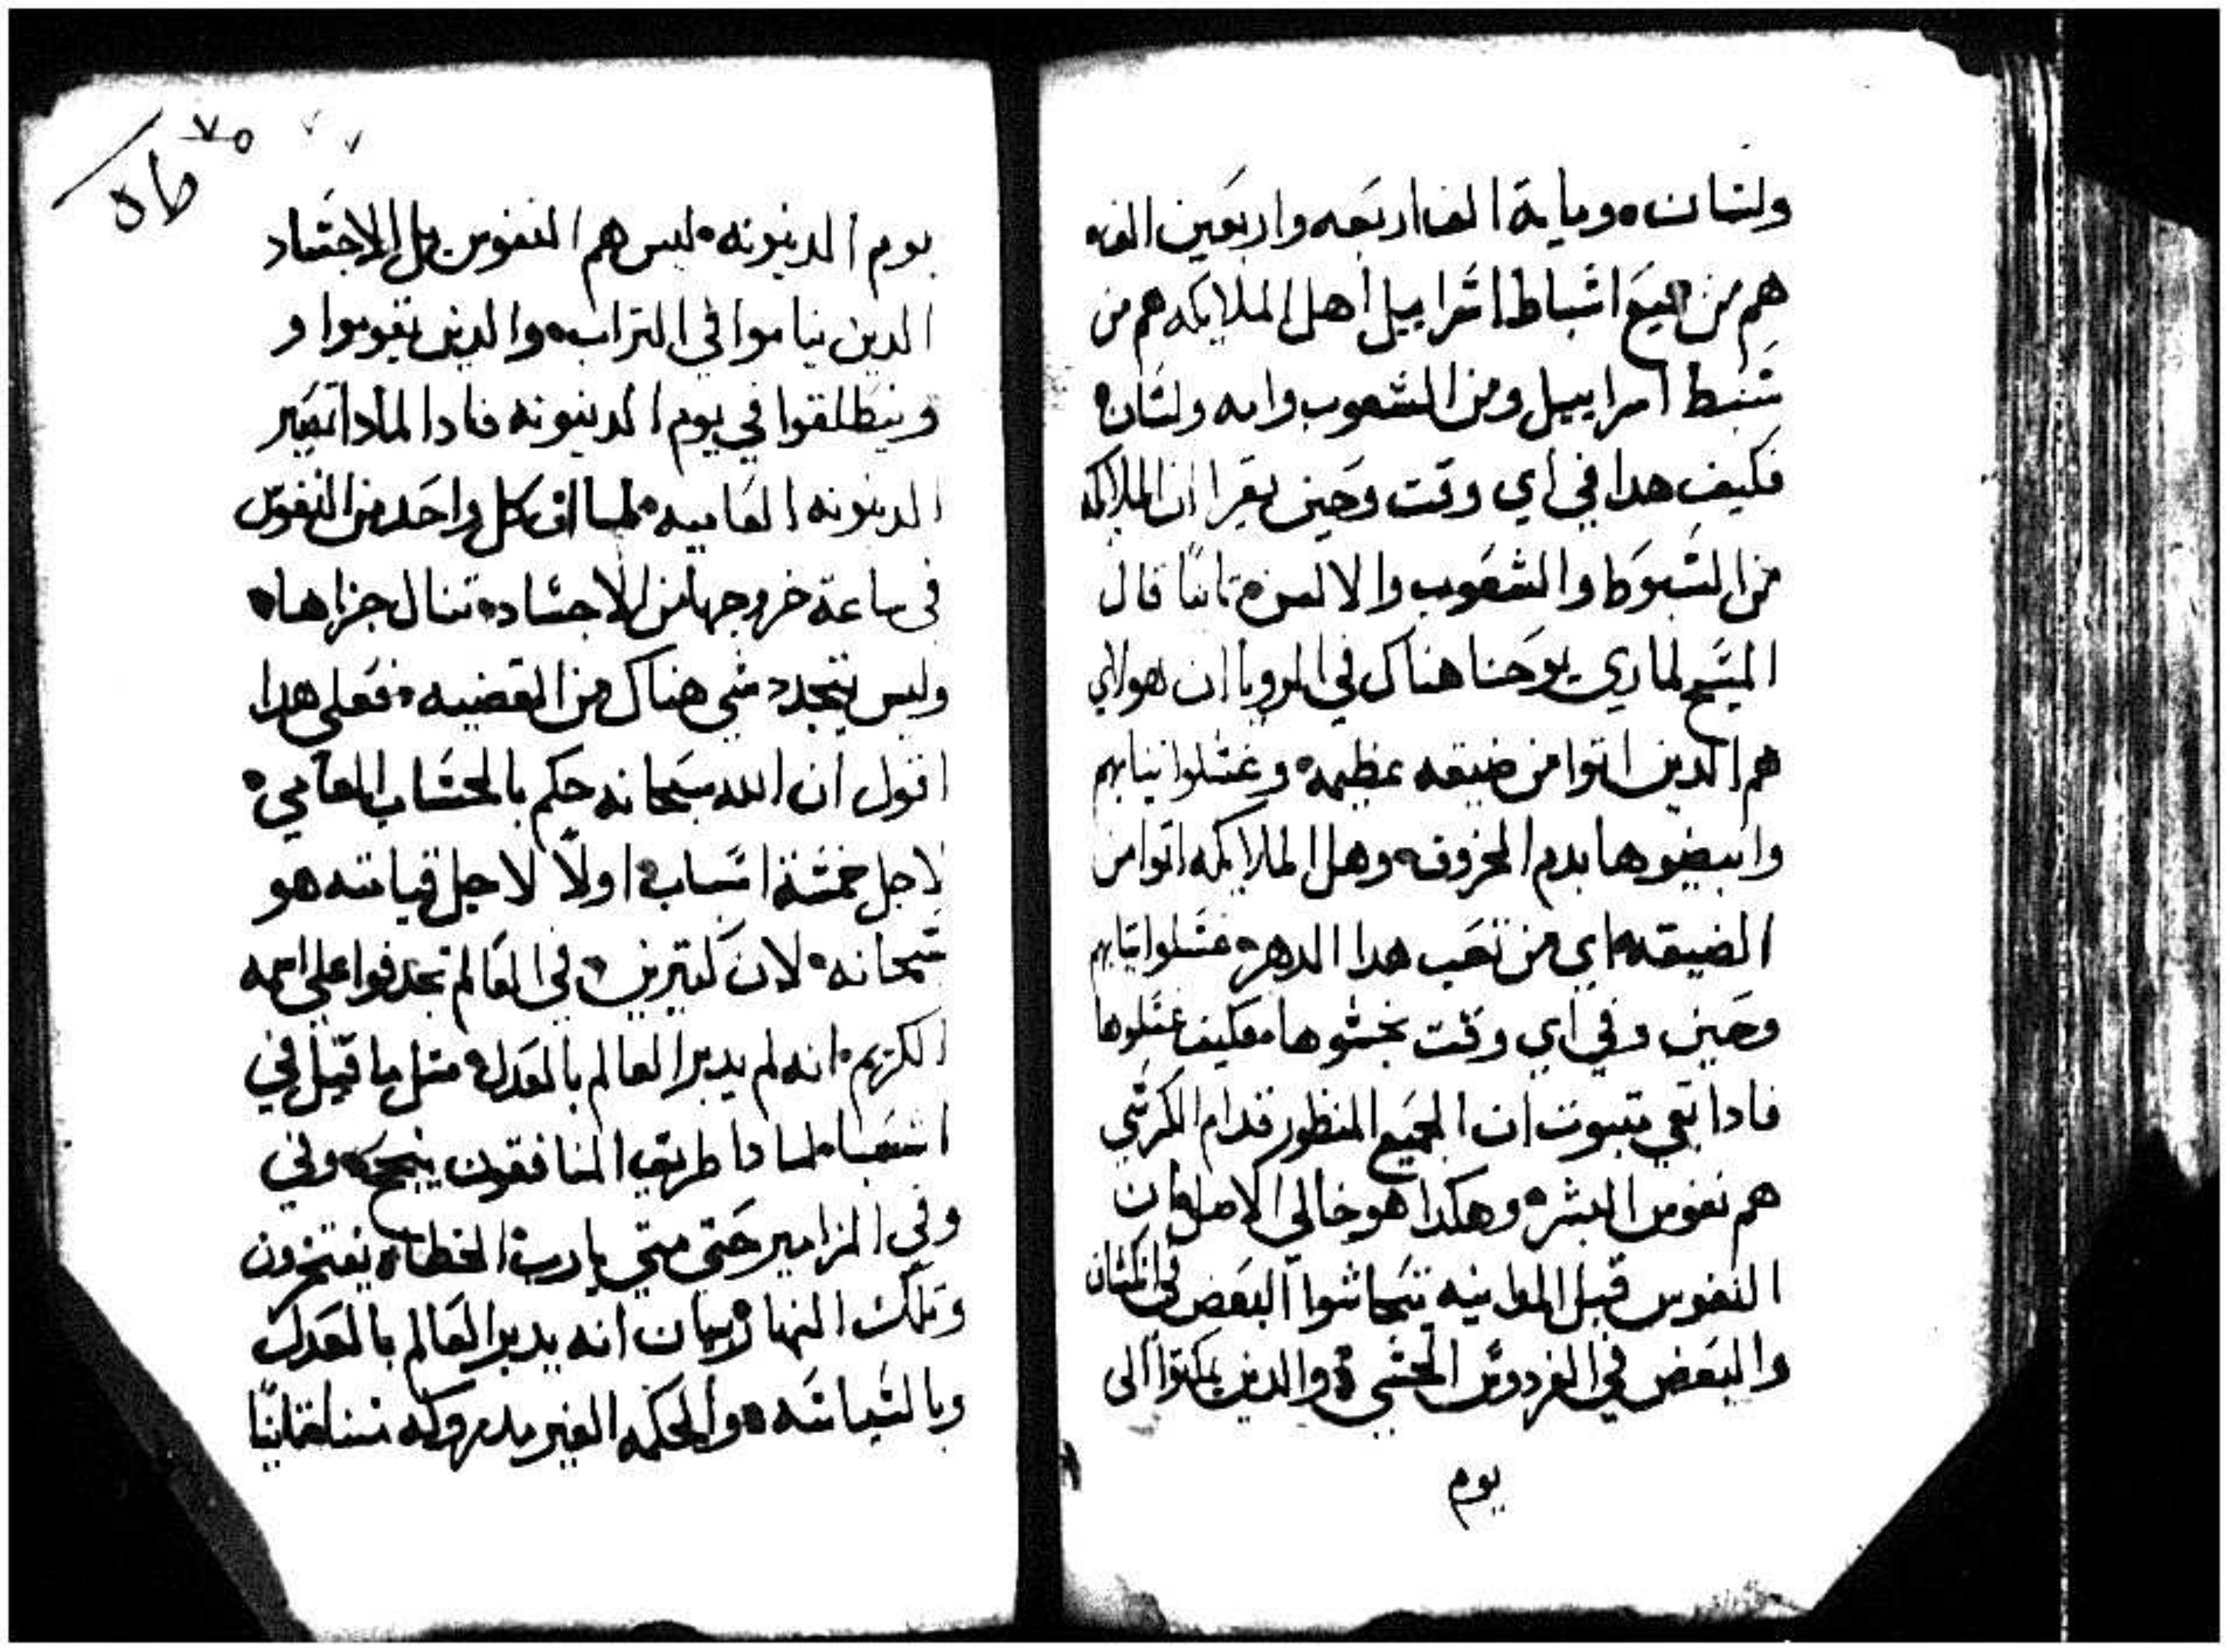 ولسان ومایة الف اربعه واربعین الف
هم من جميع اسباط اسراييل اهل الملايكه هم من
سبط اسراييل ومن الشعوب وامه ولسان
فكيف هدا في اي وقت وحين يقرا ان الملايكه
من السبوط والشعوب والالسن تانيًا قال
المسيح لماري يوحنا هناك في الرويا ان هولاي
هم الدين اتوا من ضيقه عظيمه وغسلوا تيابهم
وابيضوها بدم الخروف وهل الملايكه اتوا من
الضيقه اي من تعب هدا الدهر غسلوا تيابهم
وحين وفي اي وقت نجسوها فكيف غسلوها
فادا بقي متبوت ان الجميع المنظور قدام الكرسي
هم نفوس البشر وهكدا هو خالي الاصل ان
النفوس قبل المداينه يتحاسبوا البعض في المكان
والبعض في الفردوس الحسي والدين يمكتوا الى
يوم
٧٥
يوم الدينونه ليس هم النفوس بل الاجساد
الدين نياموا في التراب والدين يقوموا و
وينطلقوا في يوم الدينونه فادا لمادا تصير
الدينونه العاميه لما ان كل واحد من النفوس
في ساعة خروجها من الاجساد تنال جزاها
وليس يتجدد شي هناك من القضيه فعلى هدا
اقول ان الله سبحانه حكم بالحساب العامي
لاجل خمسة اسباب اولًا لاجل قيامته هو
سبحانه لان كتيرين في العالم تجدفوا على اسمه
الكريم انه لم يدبر العالم بالعدل متل ما قيل في
اشعيا لمادا طريق المنافقون ينجح وفي
وفي المزامير حتى متى يارب الخطاه يفتخرون
وتلك النهار يبان انه يدبر العالم بالعدل
وبالسياسه والحكمه الغير مدروكه منا تانيًا